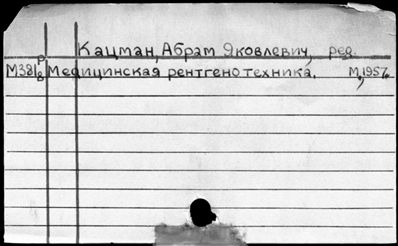 Кацман, Абрам Яковлевич, ред.
Р
М381в Медицинская рентгенотехника. М., 1957.